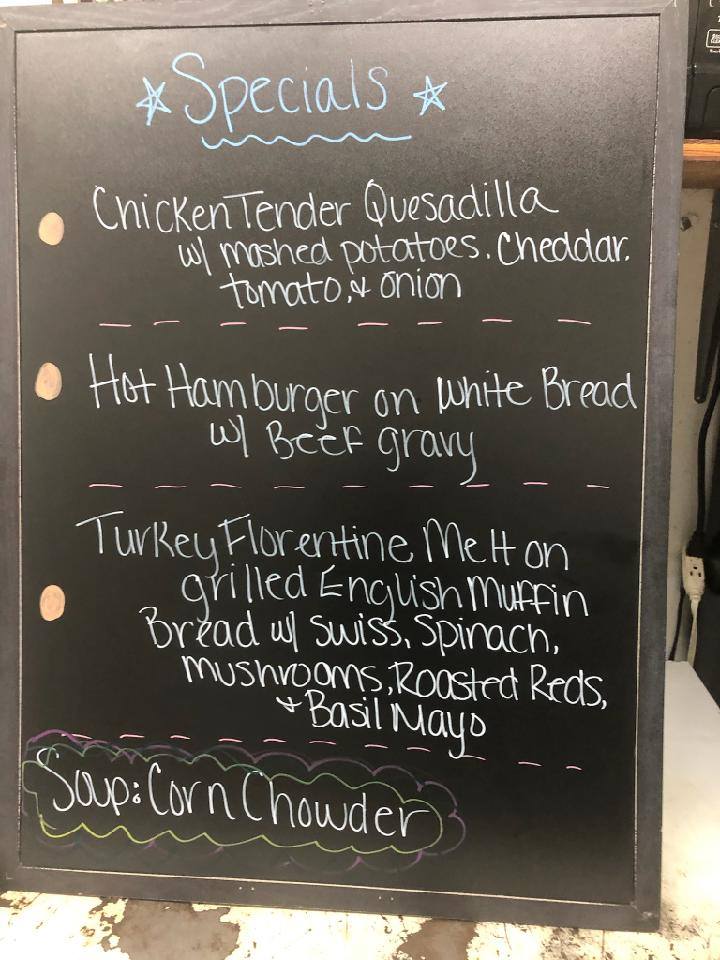 ☆ Specials ☆
Chicken Tender Quesadilla
w/ mashed potatoes, Cheddar,
tomato, & onion
Hot Hamburger on White Bread
w/ Beef gravy
Turkey Florentine Melt on
grilled English Muffin
Bread w/ Swiss, Spinach,
mushrooms, Roasted Reds,
& Basil Mayo
Soup: Corn Chowder